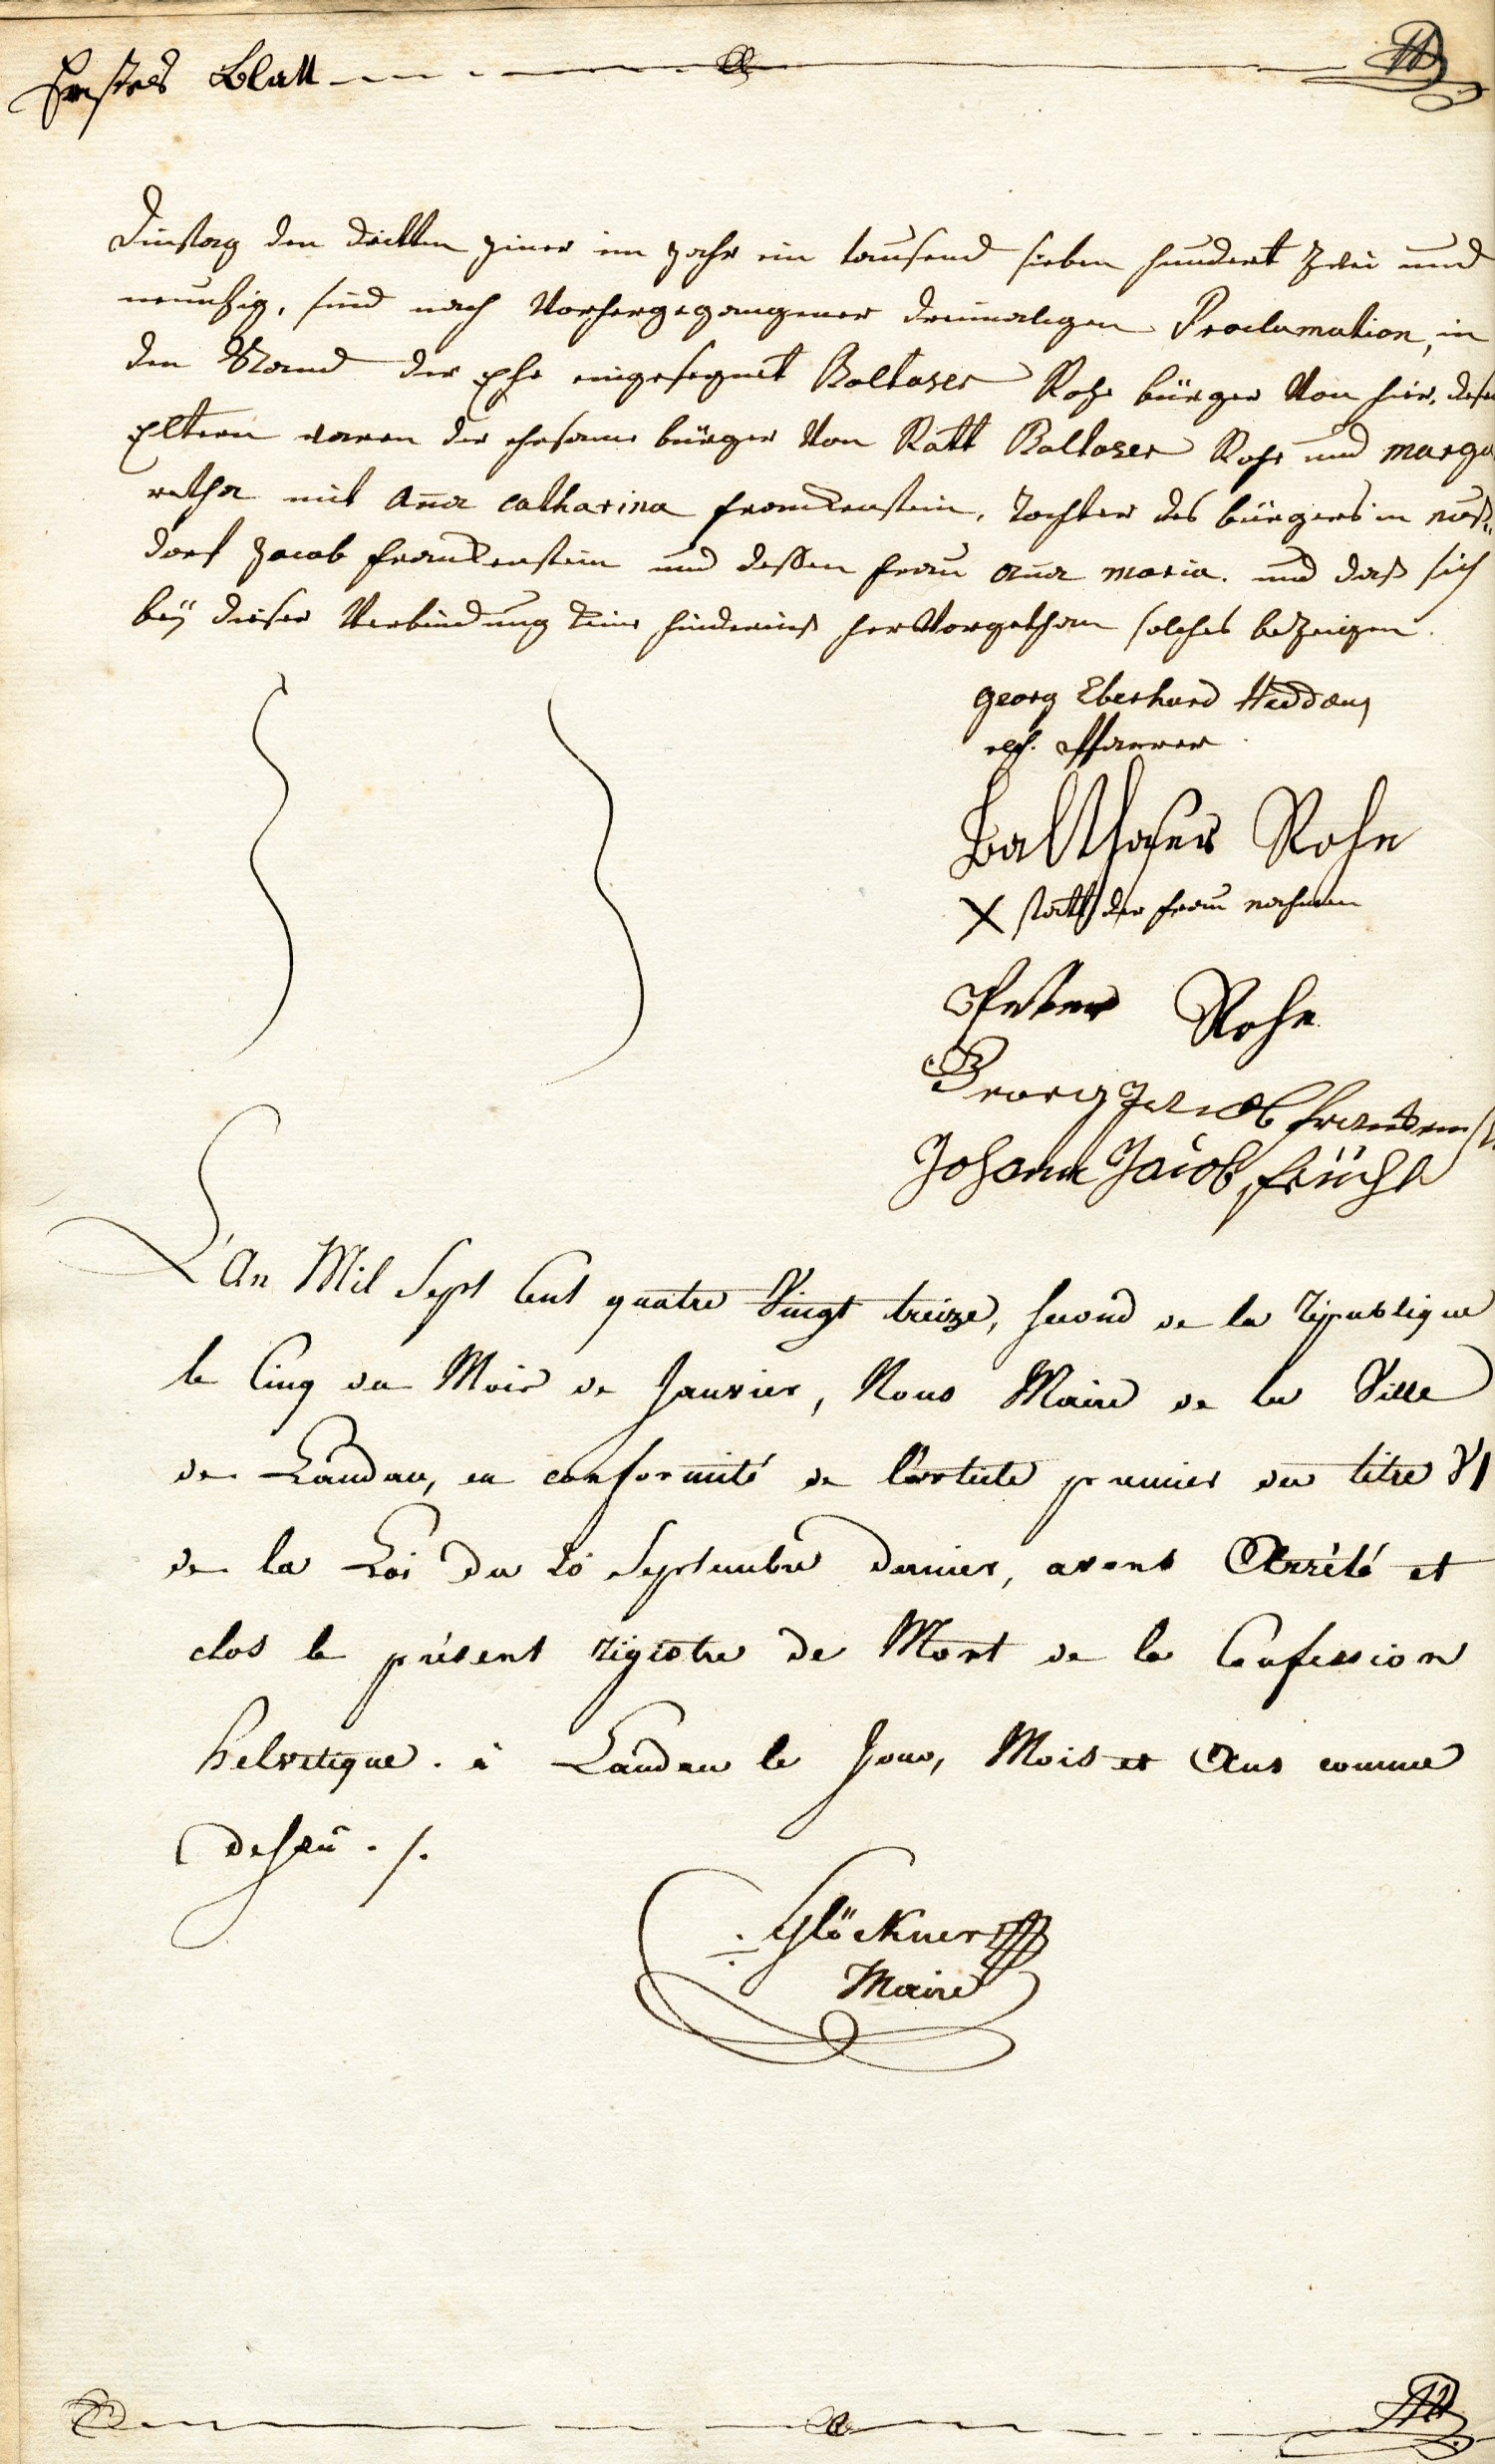 Erstes Blatt
Dinstag den dritten Jener im Jahr ein tausend sieben hundert zwei und
neunzig, sind nach Vorhergegangener dreimaligen Proclamation, in
den Stand der Ehe eingesegnet Baltaser Rohe bürger Von hier, desen
Eltern waren der ehrsame bürger Von Ratt Baltaser Rohe und marga
retha mit Aña catharina Franckenstein, Tochter des bürgers in nuß-
dorf Jacob Franckenstein und dessen Frau aña maria. und daß sich
beÿ dieser Verbindung keine hinderniß herVorgethan solches beZeugen.
Georg Eberhard Heddaus
ref. Pfarrer
Balthaser Rohe
X statt der frau nahmen
Peter Rohe
Georg Jacob Franckenst
Johann Jacob
L'An Mil Sept Cent quatre Vingt treize, second de la république
le Cinq du Mois de Janvier, Nous Maire de la Ville
de Landau, en conformité de l'article premier du titre VI
de la Loi du 20 Septembre dernier, avons Arrêté et
clos le présent régistre de Mort de la Confession
helvetique. à Landau le Jour, Mois et Ans comme
dessu ./.
Glöckner
Maire